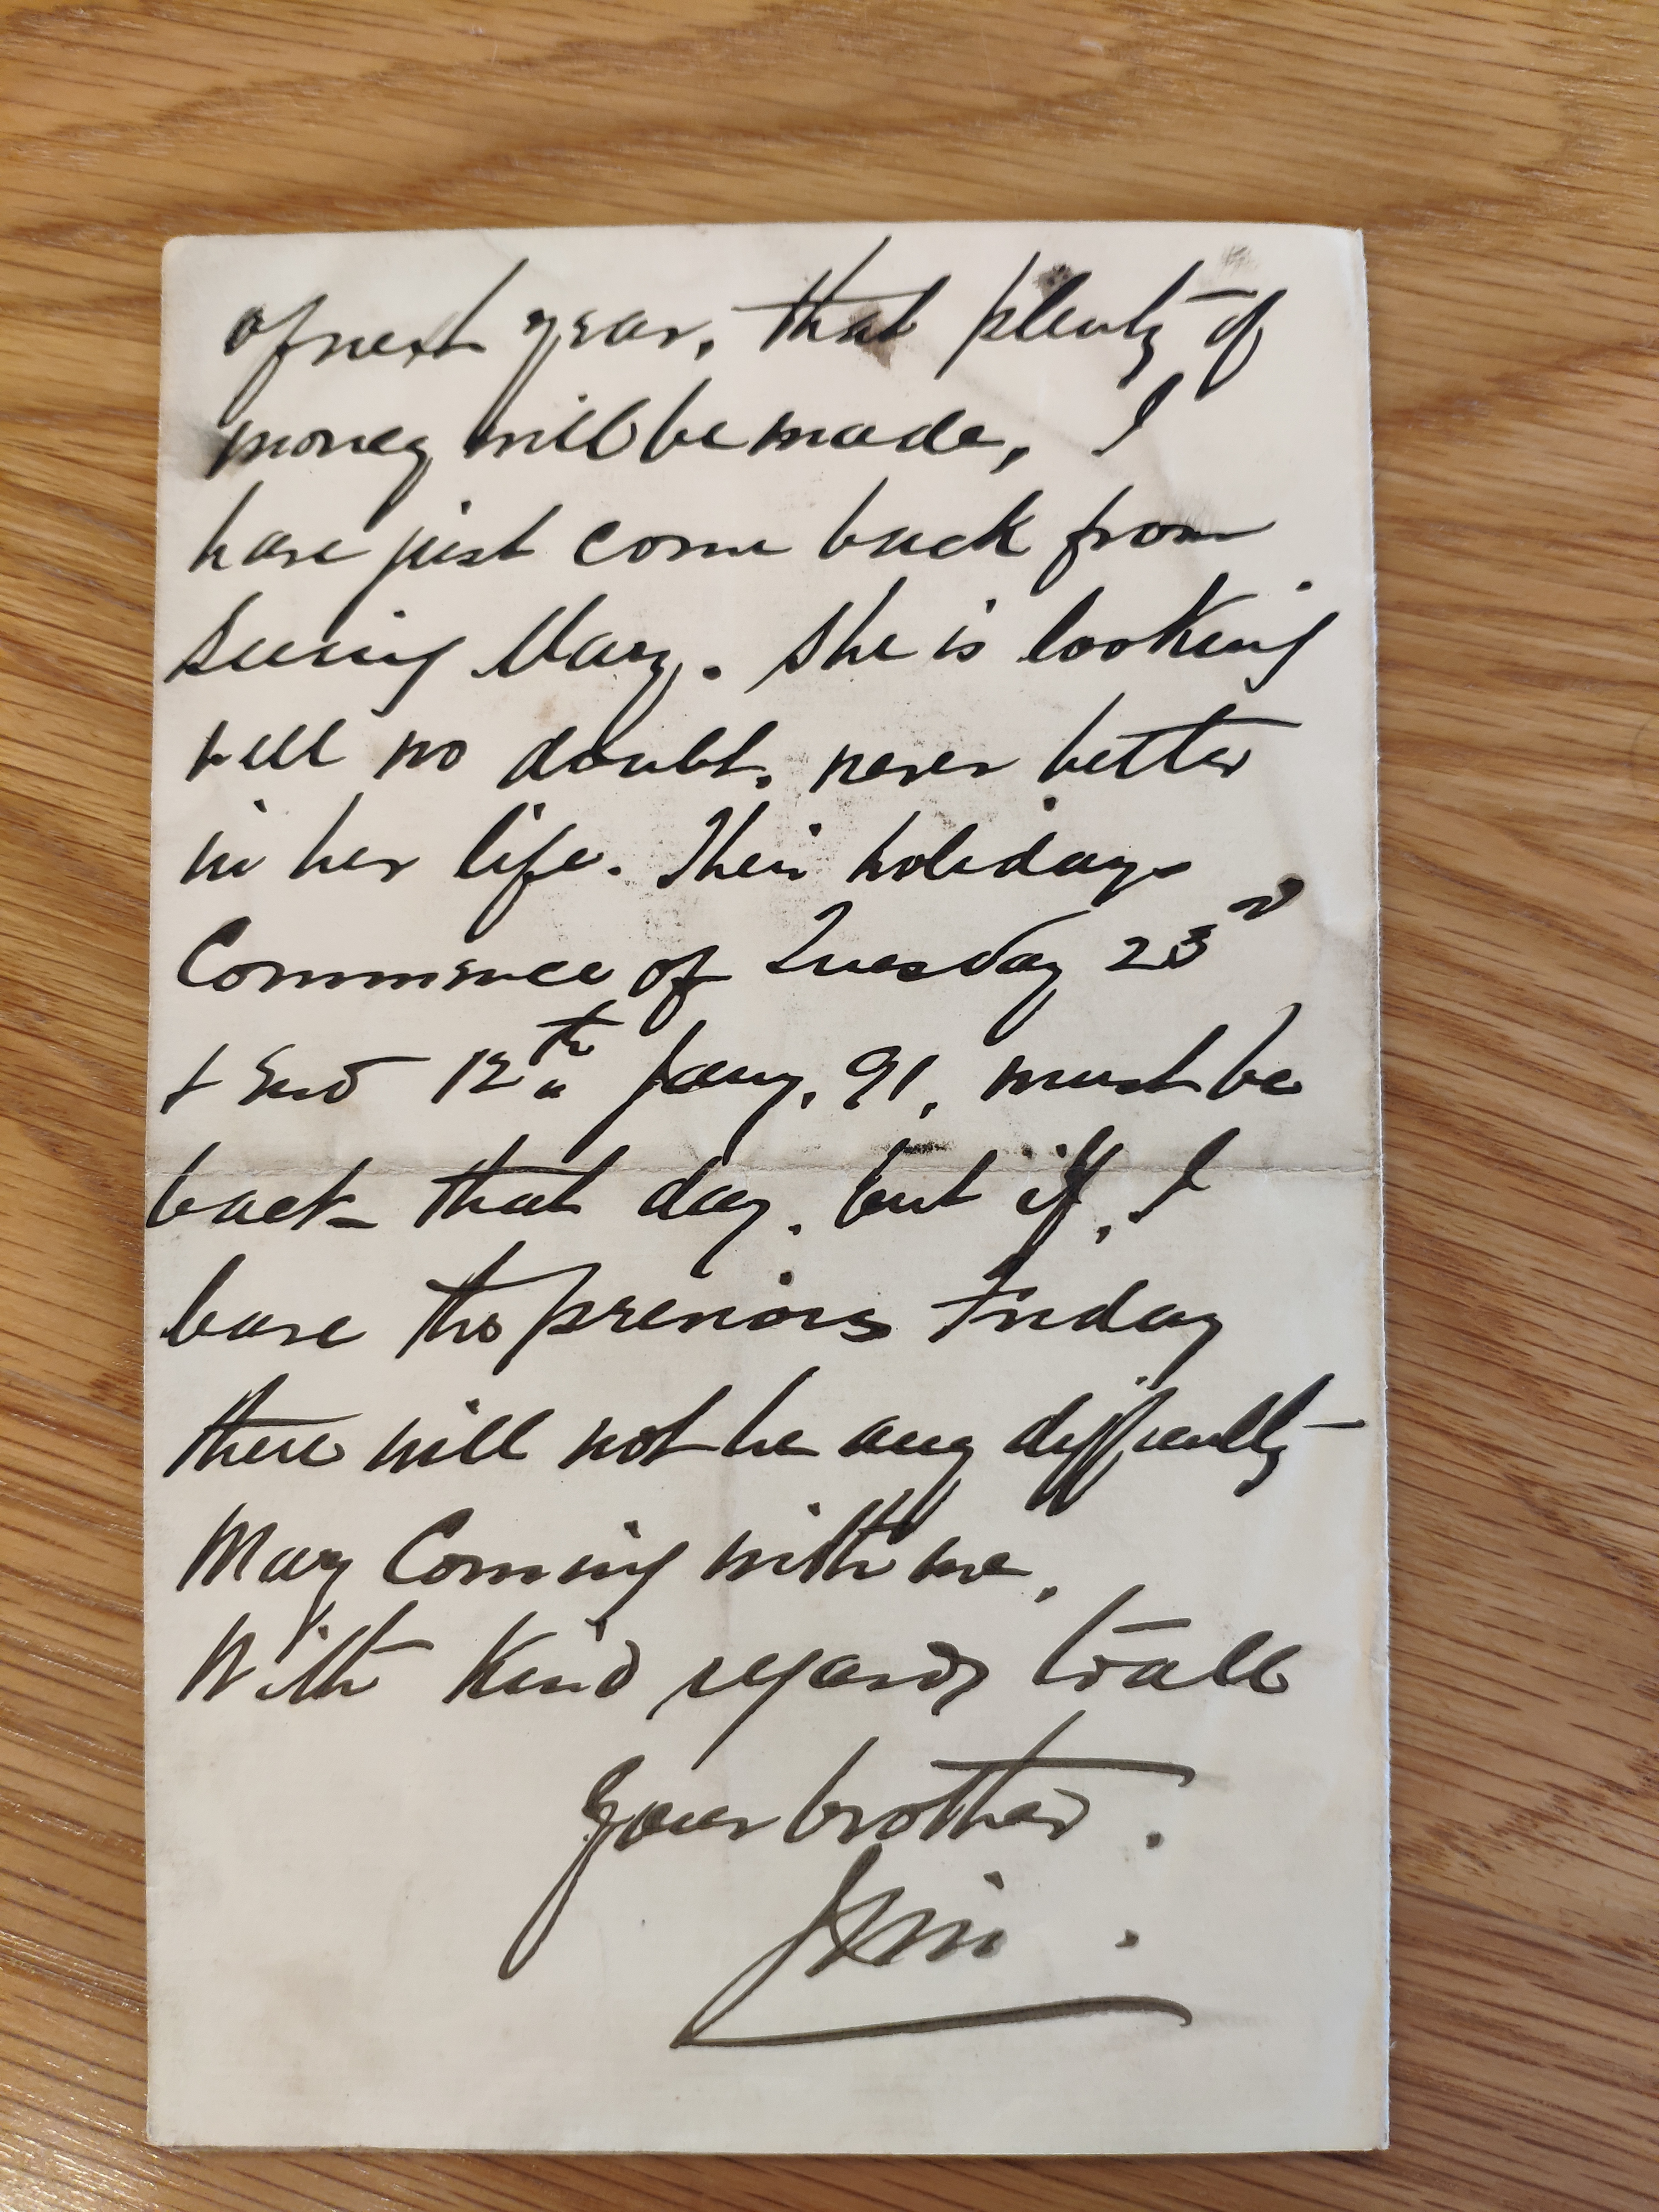 of next year, that plenty of
money will be made, I
have just come back from
seeing Mary. She is looking
well no doubt, never better
in her life. Their holidays
Commence of Tuesday 23rd
& End 12th Jany, 91, must be
back that day, but if, I
leave the previous Friday
there will not be any difficulty
Mary Coming with me.
With Kind regards to all
Your brother.
Jim.